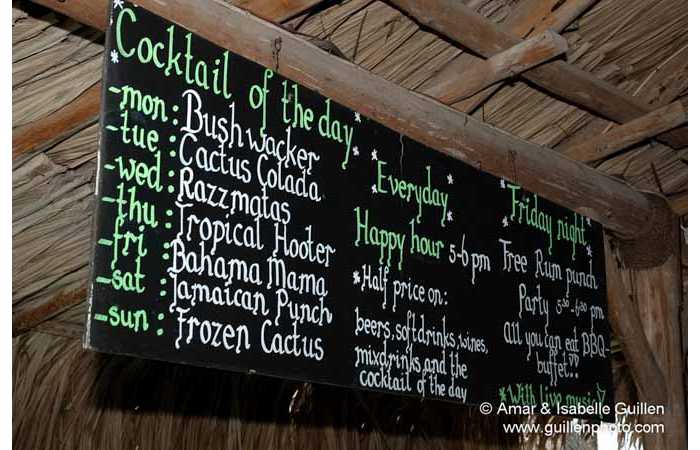 Cocktail of the day
-mon: Bushwacker
-tue: Cactus Colada
-wed: Razzmatas
-thu: Tropical Hooter
-fri: Bahama Mama
-sat: Jamaican Punch
-sun: Frozen Cactus
*Everyday*
Happy hour 5-6 pm
*Half price on:
beers, softdrinks, wines,
mixdrinks and the
cocktail of the day
*Friday night*
Free Rum punch
Party 5³⁰-6³⁰ pm
All you can eat BBQ-
buffet!?
*With live music
© Amar & Isabelle Guillen
www.guillenphoto.com